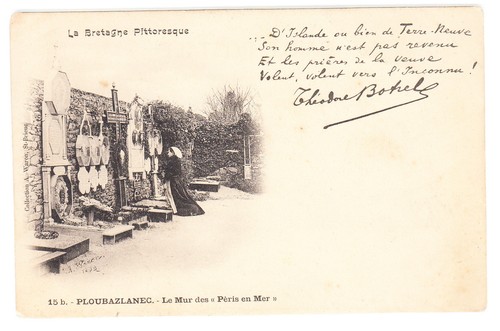 La Bretagne Pittoresque
... D'Islande ou bien de Terre-Neuve
Son homme n'est pas revenu
Et les prières de la veuve
Volent, volent vers l'Inconnu !
Théodore Botrel
Collection A. Waron, St-Brieuc
15 b. - PLOUBAZLANEC. - Le Mur des « Péris en Mer »